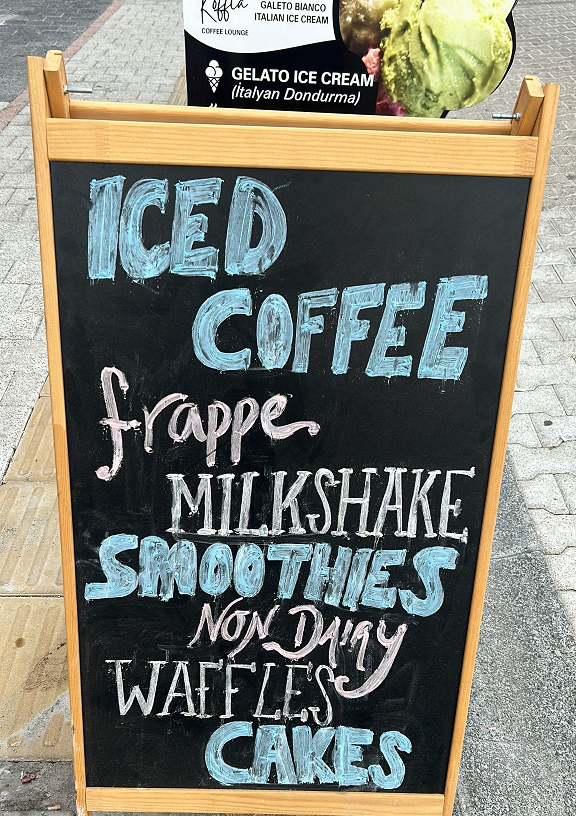 Koffia
COFFEE LOUNGE
GALETO BIANCO
ITALIAN ICE CREAM
GELATO ICE CREAM
(Italyan Dondurma)
ICED
COFFEE
frappe
MILKSHAKE
SMOOTHIES
NON DAIRY
WAFFLES
CAKES